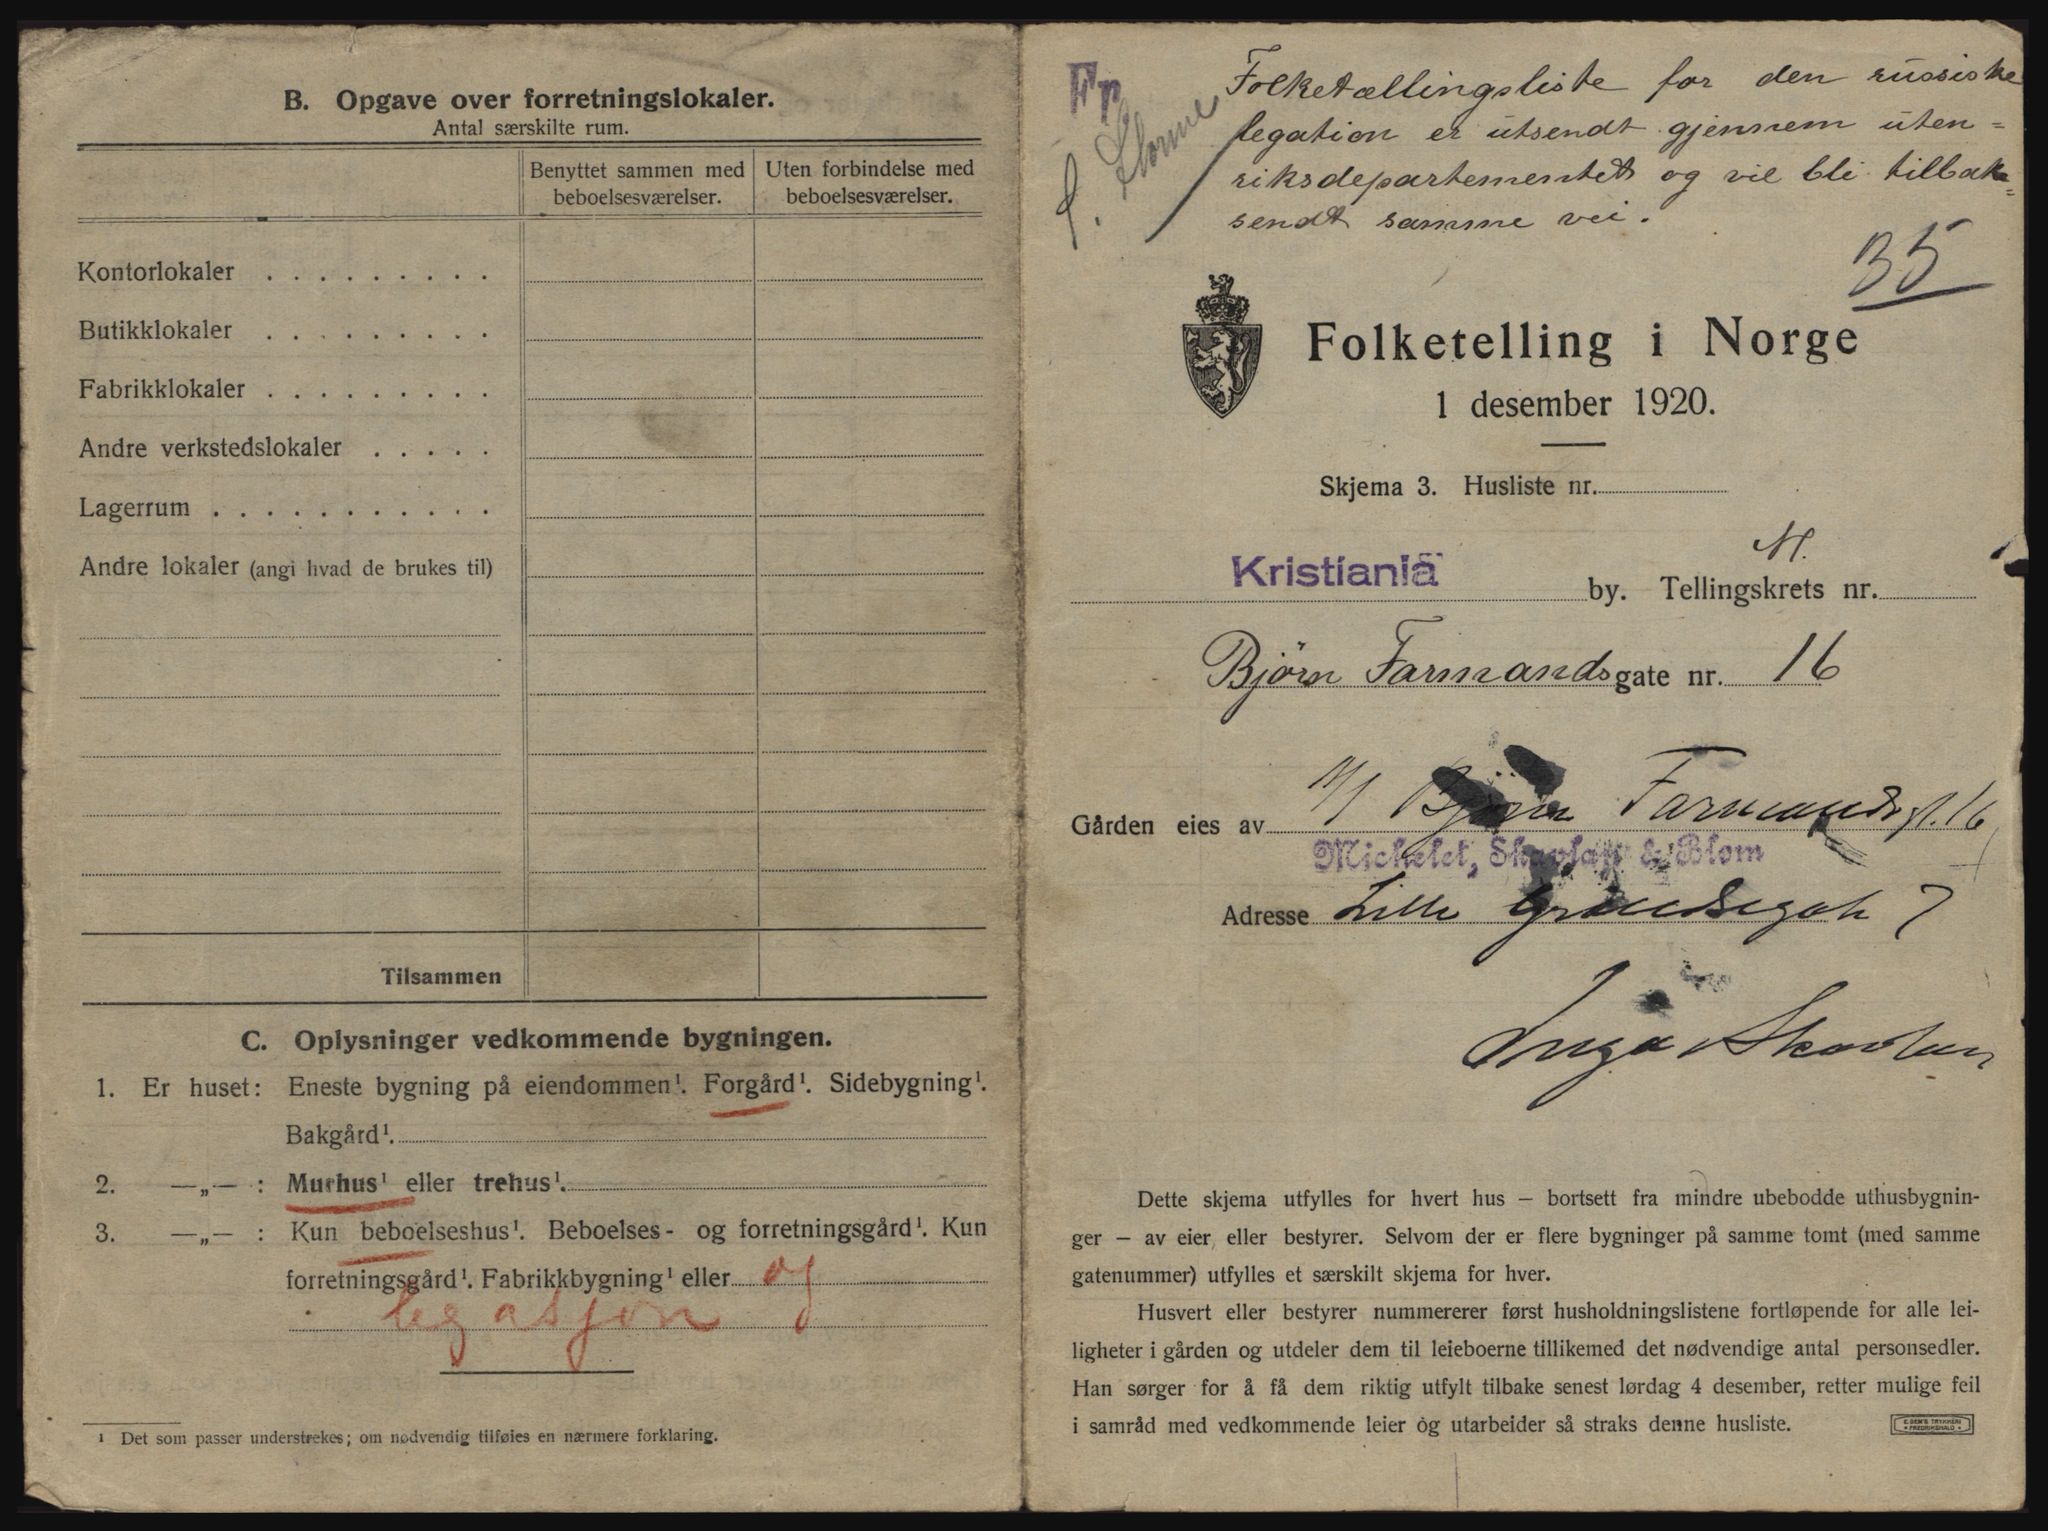 B. Opgave over forretningslokaler.
Antal særskilte rum.
Benyttet sammen med
beboelsesværelser.
Uten forbindelse med
beboelsesværelser.
Kontorlokaler . . . . . . . . .
Butikklokaler . . . . . . . . .
Fabrikklokaler . . . . . . . . .
Andre verkstedslokaler . . . . .
Lagerrum . . . . . . . . . . .
Andre lokaler (angi hvad de brukes til)
Tilsammen
C. Oplysninger vedkommende bygningen.
1. Er huset: Eneste bygning på eiendommen¹. Forgård¹. Sidebygning¹.
Bakgård¹.
2. —„— : Murhus¹ eller trehus¹.
3. —„— : Kun beboelseshus¹. Beboelses- og forretningsgård¹. Kun
forretningsgård¹. Fabrikkbygning¹ eller og
legasjon
¹ Det som passer understrekes; om nødvendig tilføies en nærmere forklaring.
Fr
Folketællingsliste for den russiske
legation er utsendt gjennem uten=
riksdepartementet og vil bli tilbake=
sendt samme vei.
35
Folketelling i Norge
1 desember 1920.
Skjema 3. Husliste nr.
Kristiania by. Tellingskrets nr.
Bjørn Farmandsgate nr. 16
Gården eies av A/S Bjørn Farmandsgt. 16
Michelet, Skavlan & Blom
Adresse Lille Grændsegate 7
Inga Skavlan
Dette skjema utfylles for hvert hus – bortsett fra mindre ubebodde uthusbygnin-
ger – av eier eller bestyrer. Selvom der er flere bygninger på samme tomt (med samme
gatenummer) utfylles et særskilt skjema for hver.
Husvert eller bestyrer nummererer først husholdningslistene fortløpende for alle lei-
ligheter i gården og utdeler dem til leieboerne tillikemed det nødvendige antal personsedler.
Han sørger for å få dem riktig utfylt tilbake senest lørdag 4 desember, retter mulige feil
i samråd med vedkommende leier og utarbeider så straks denne husliste.